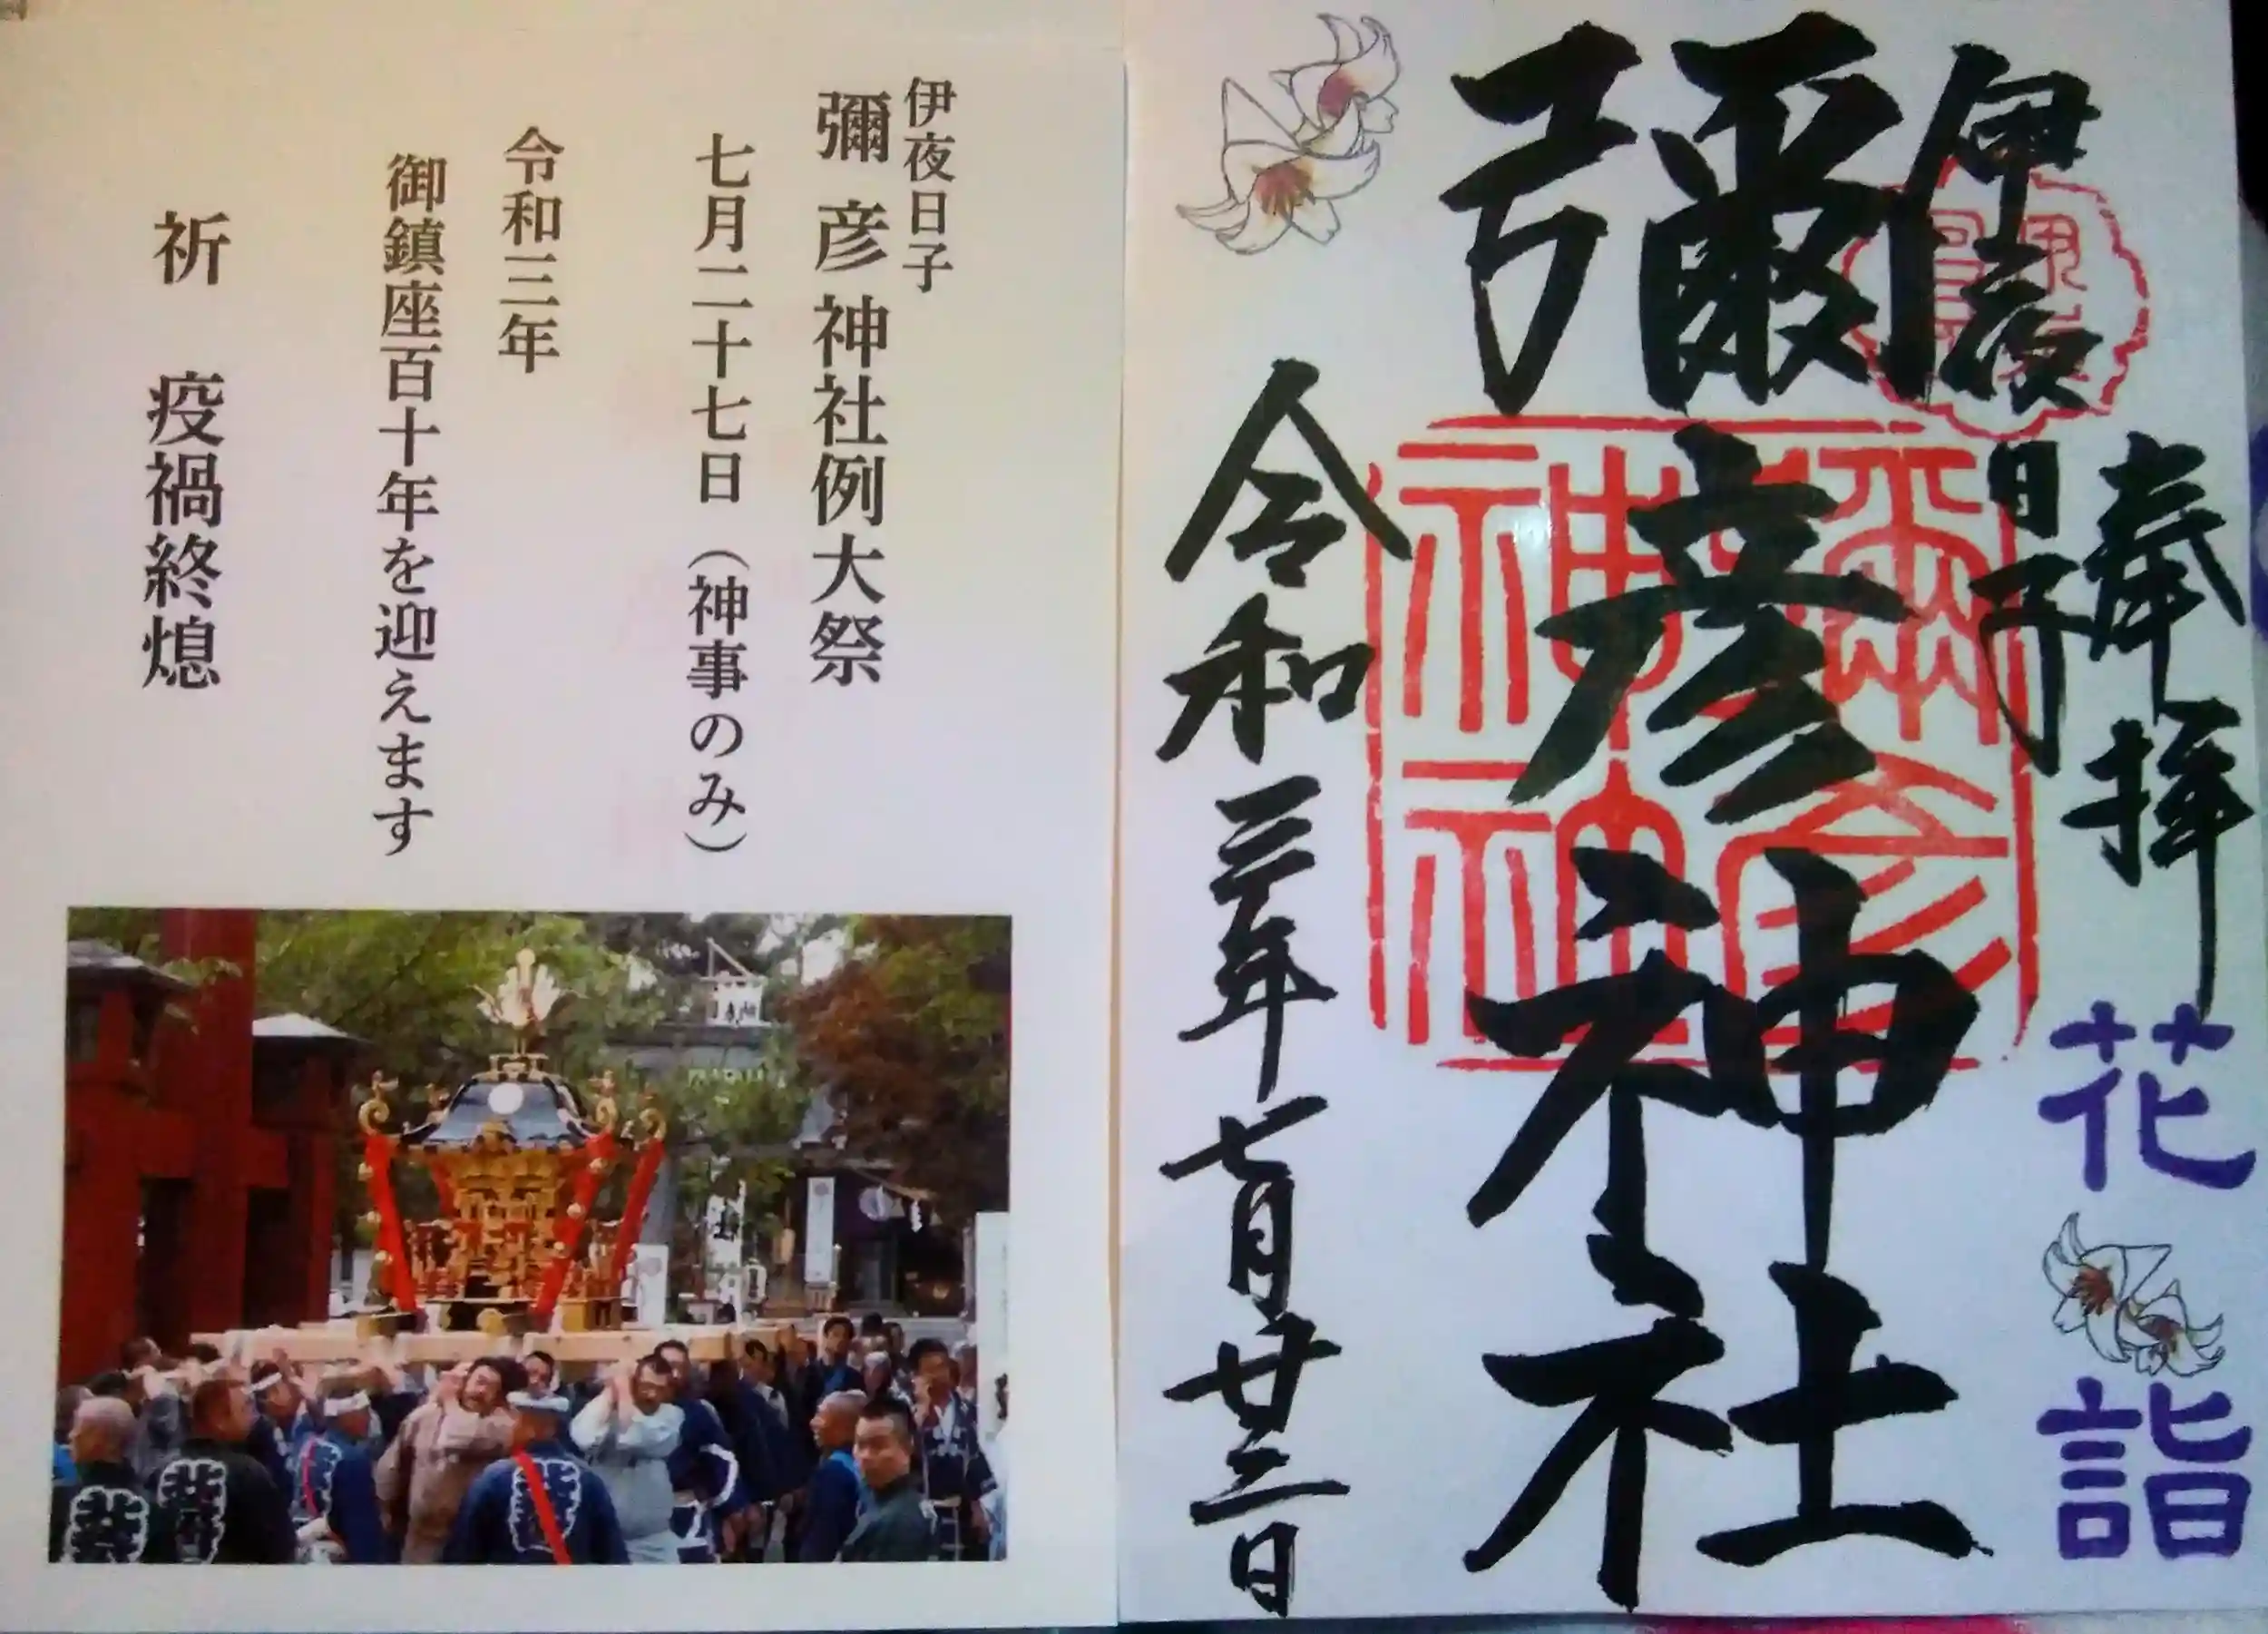 奉拝
花
詣
伊夜日子
彌彦神社
令和三年七月廿三日
彌彦
神社
伊夜日子
彌彦神社例大祭
七月二十七日（神事のみ）
令和三年
御鎮座百十年を迎えます
祈 疫禍終熄